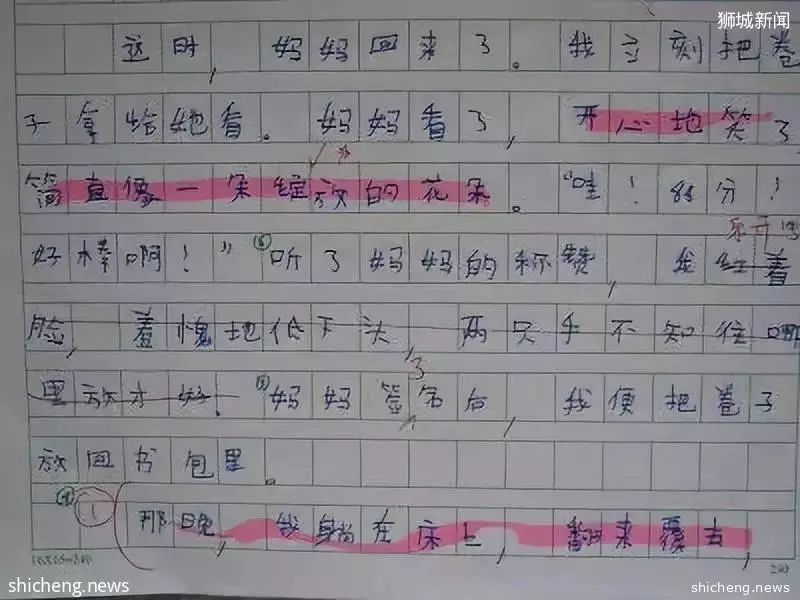 狮城新闻
这时，妈妈回来了。我立刻把卷
子拿给她看。妈妈看了，开心地笑了
简直像一朵绽放的花朵。“哇！88分！
乐开
好棒啊！”听了妈妈的称赞，我红着
脸，羞愧地低下头，两只手不知往哪
里放才好。妈妈签了名后，我便把卷子
放回书包里。
① 那晚，我躺在床上，翻来覆去，
shicheng.news
shicheng.news